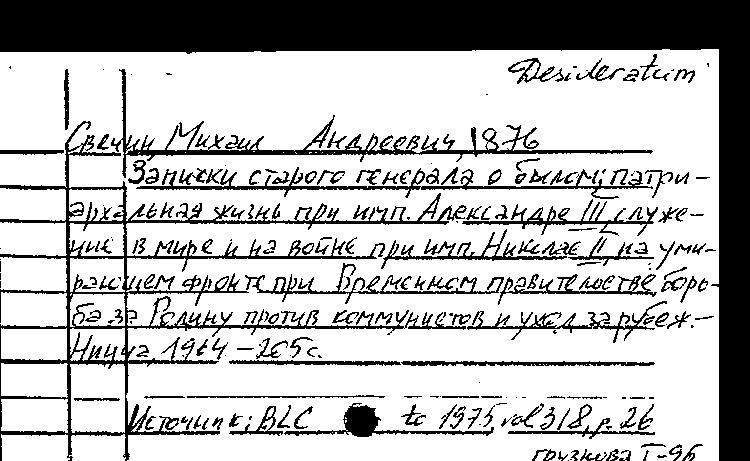 Desideratum
Свечин, Михаил Андреевич, 1876
Записки старого генерала о былом; патри-
архальная жизнь при имп. Александре III, служе-
ние в мире и на войне при имп. Николае II, на уми-
рающем фронте при Временном правительстве, борь-
ба за Родину против коммунистов и уход за рубеж.-
Ницца, 1964 – 205 с.
Источник: BLC to 1975, vol 318, p. 26
грузкова Т-96